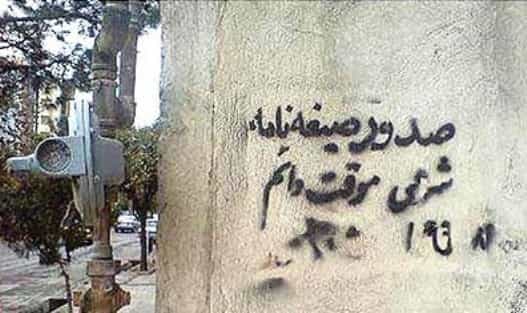 صدور صیغه نامه
شرعی موقت دائم